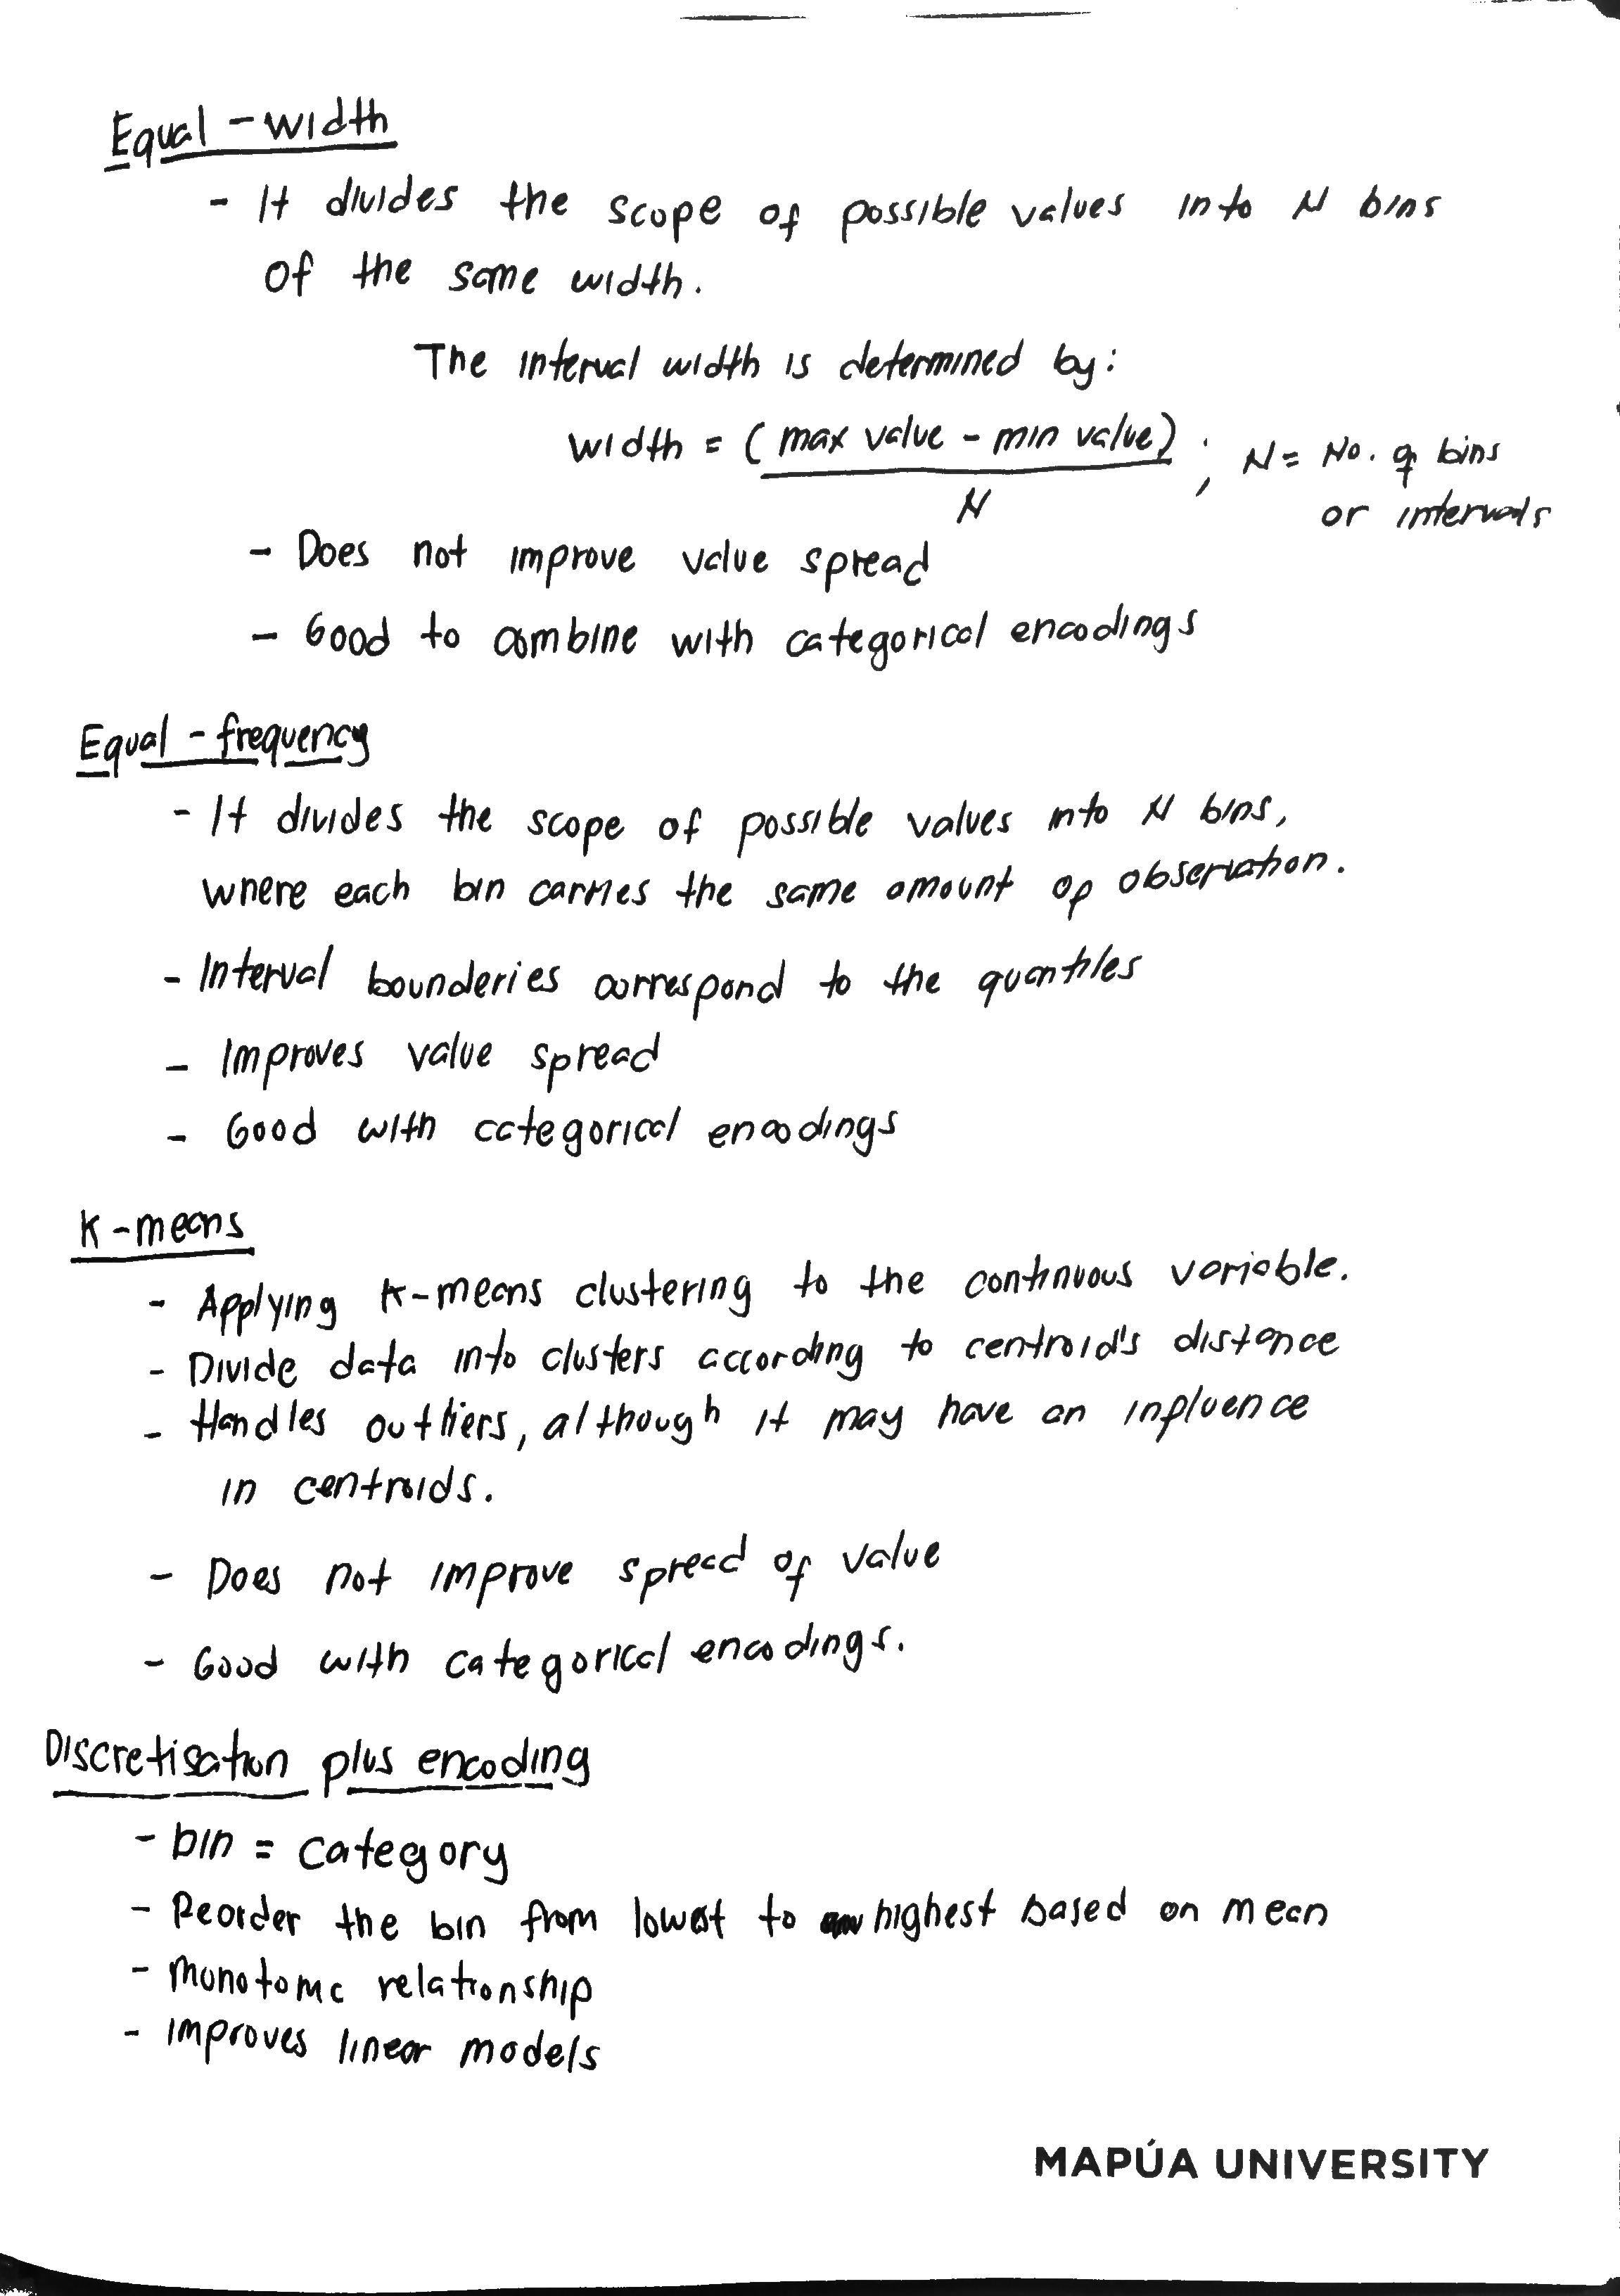 Equal-width
- It divides the scope of possible values into N bins
of the same width.
The interval width is determined by:
width = (max value - min value) ; N = No. of bins
N
or intervals
- Does not improve value spread
- Good to combine with categorical encodings
Equal-frequency
- It divides the scope of possible values into N bins,
where each bin carries the same amount of observation.
- Interval bounderies correspond to the quantiles
- Improves value spread
- Good with categorical encodings
K-means
- Applying K-means clustering to the continuous variable.
- Divide data into clusters according to centroid's distance
- Handles outliers, although it may have an influence
in centroids.
- Does not improve spread of value
- Good with categorical encodings.
Discretisation plus encoding
- bin = category
- Reorder the bin from lowest to highest based on mean
- monotonic relationship
- improves linear models
MAPÚA UNIVERSITY